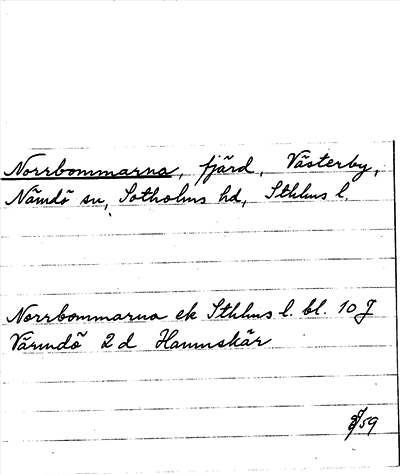 Norrbommarna, fjärd, Västerby,
Nämdö sn, Sotholms hd, Sthlms l.
Norrbommarna ek Sthlms l. bl. 10 J
Värmdö 2d Hamnskär
59